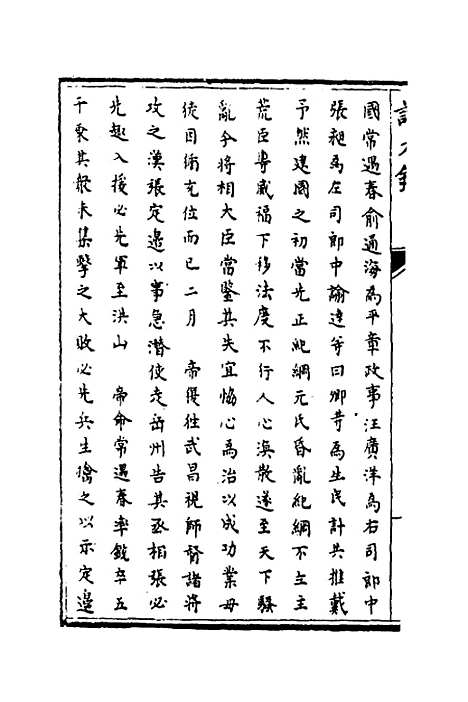 國常遇春俞通海為平章政事汪廣洋為右司郎中
張昶為左司郎中諭達等曰卿等為生民計共推戴
予然建國之初當先正紀綱元氏昏亂紀綱不立主
荒臣專威福下移法度不行人心渙散遂至天下騷
亂今將相大臣當鑒其失宜恊心為治以成功業毋
徒因循充位而已二月　帝復往武昌視師督諸將
攻之漢張定邊以事急潛使走岳州告其丞相張必
先趣入援必先軍至洪山　帝命常遇春率銳卒五
千乘其衆未集擊之大敗必先兵生擒之以示定邊